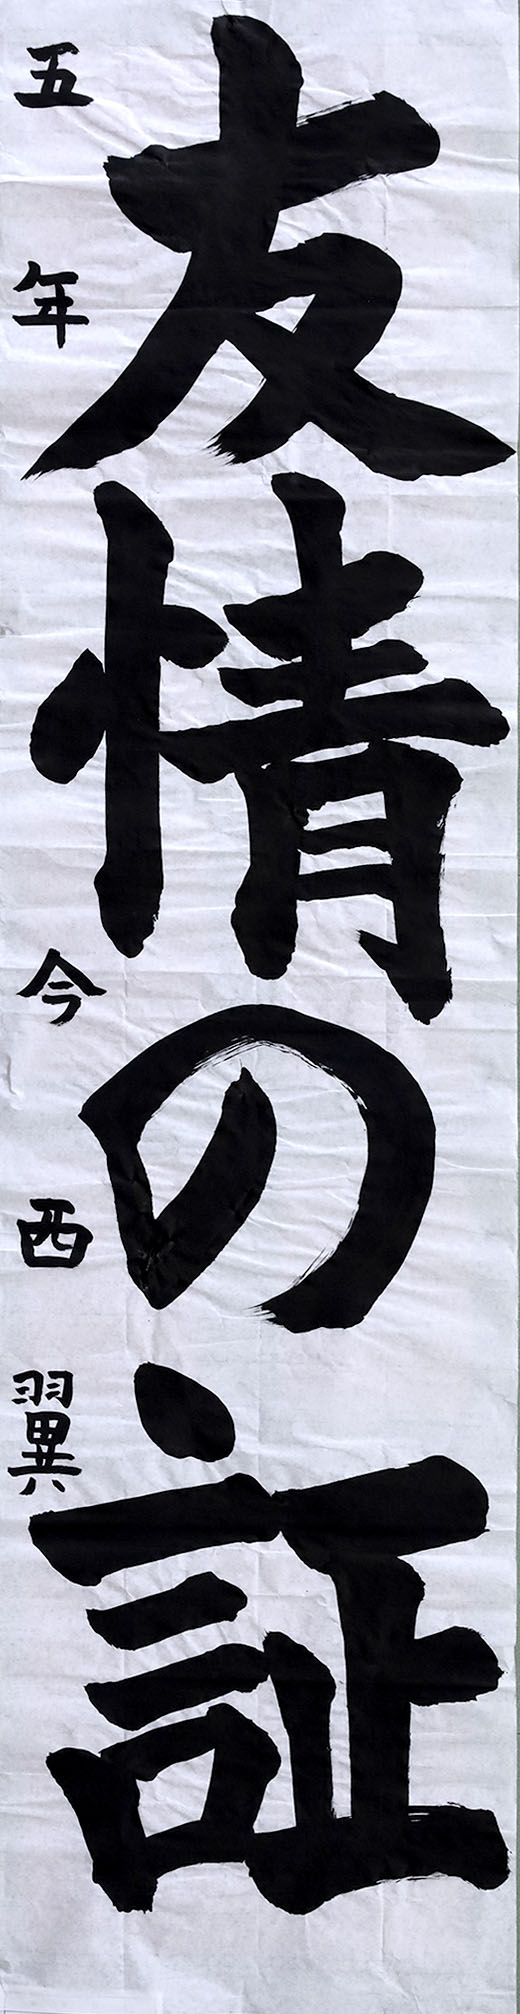 友情の証
五年 今西翼